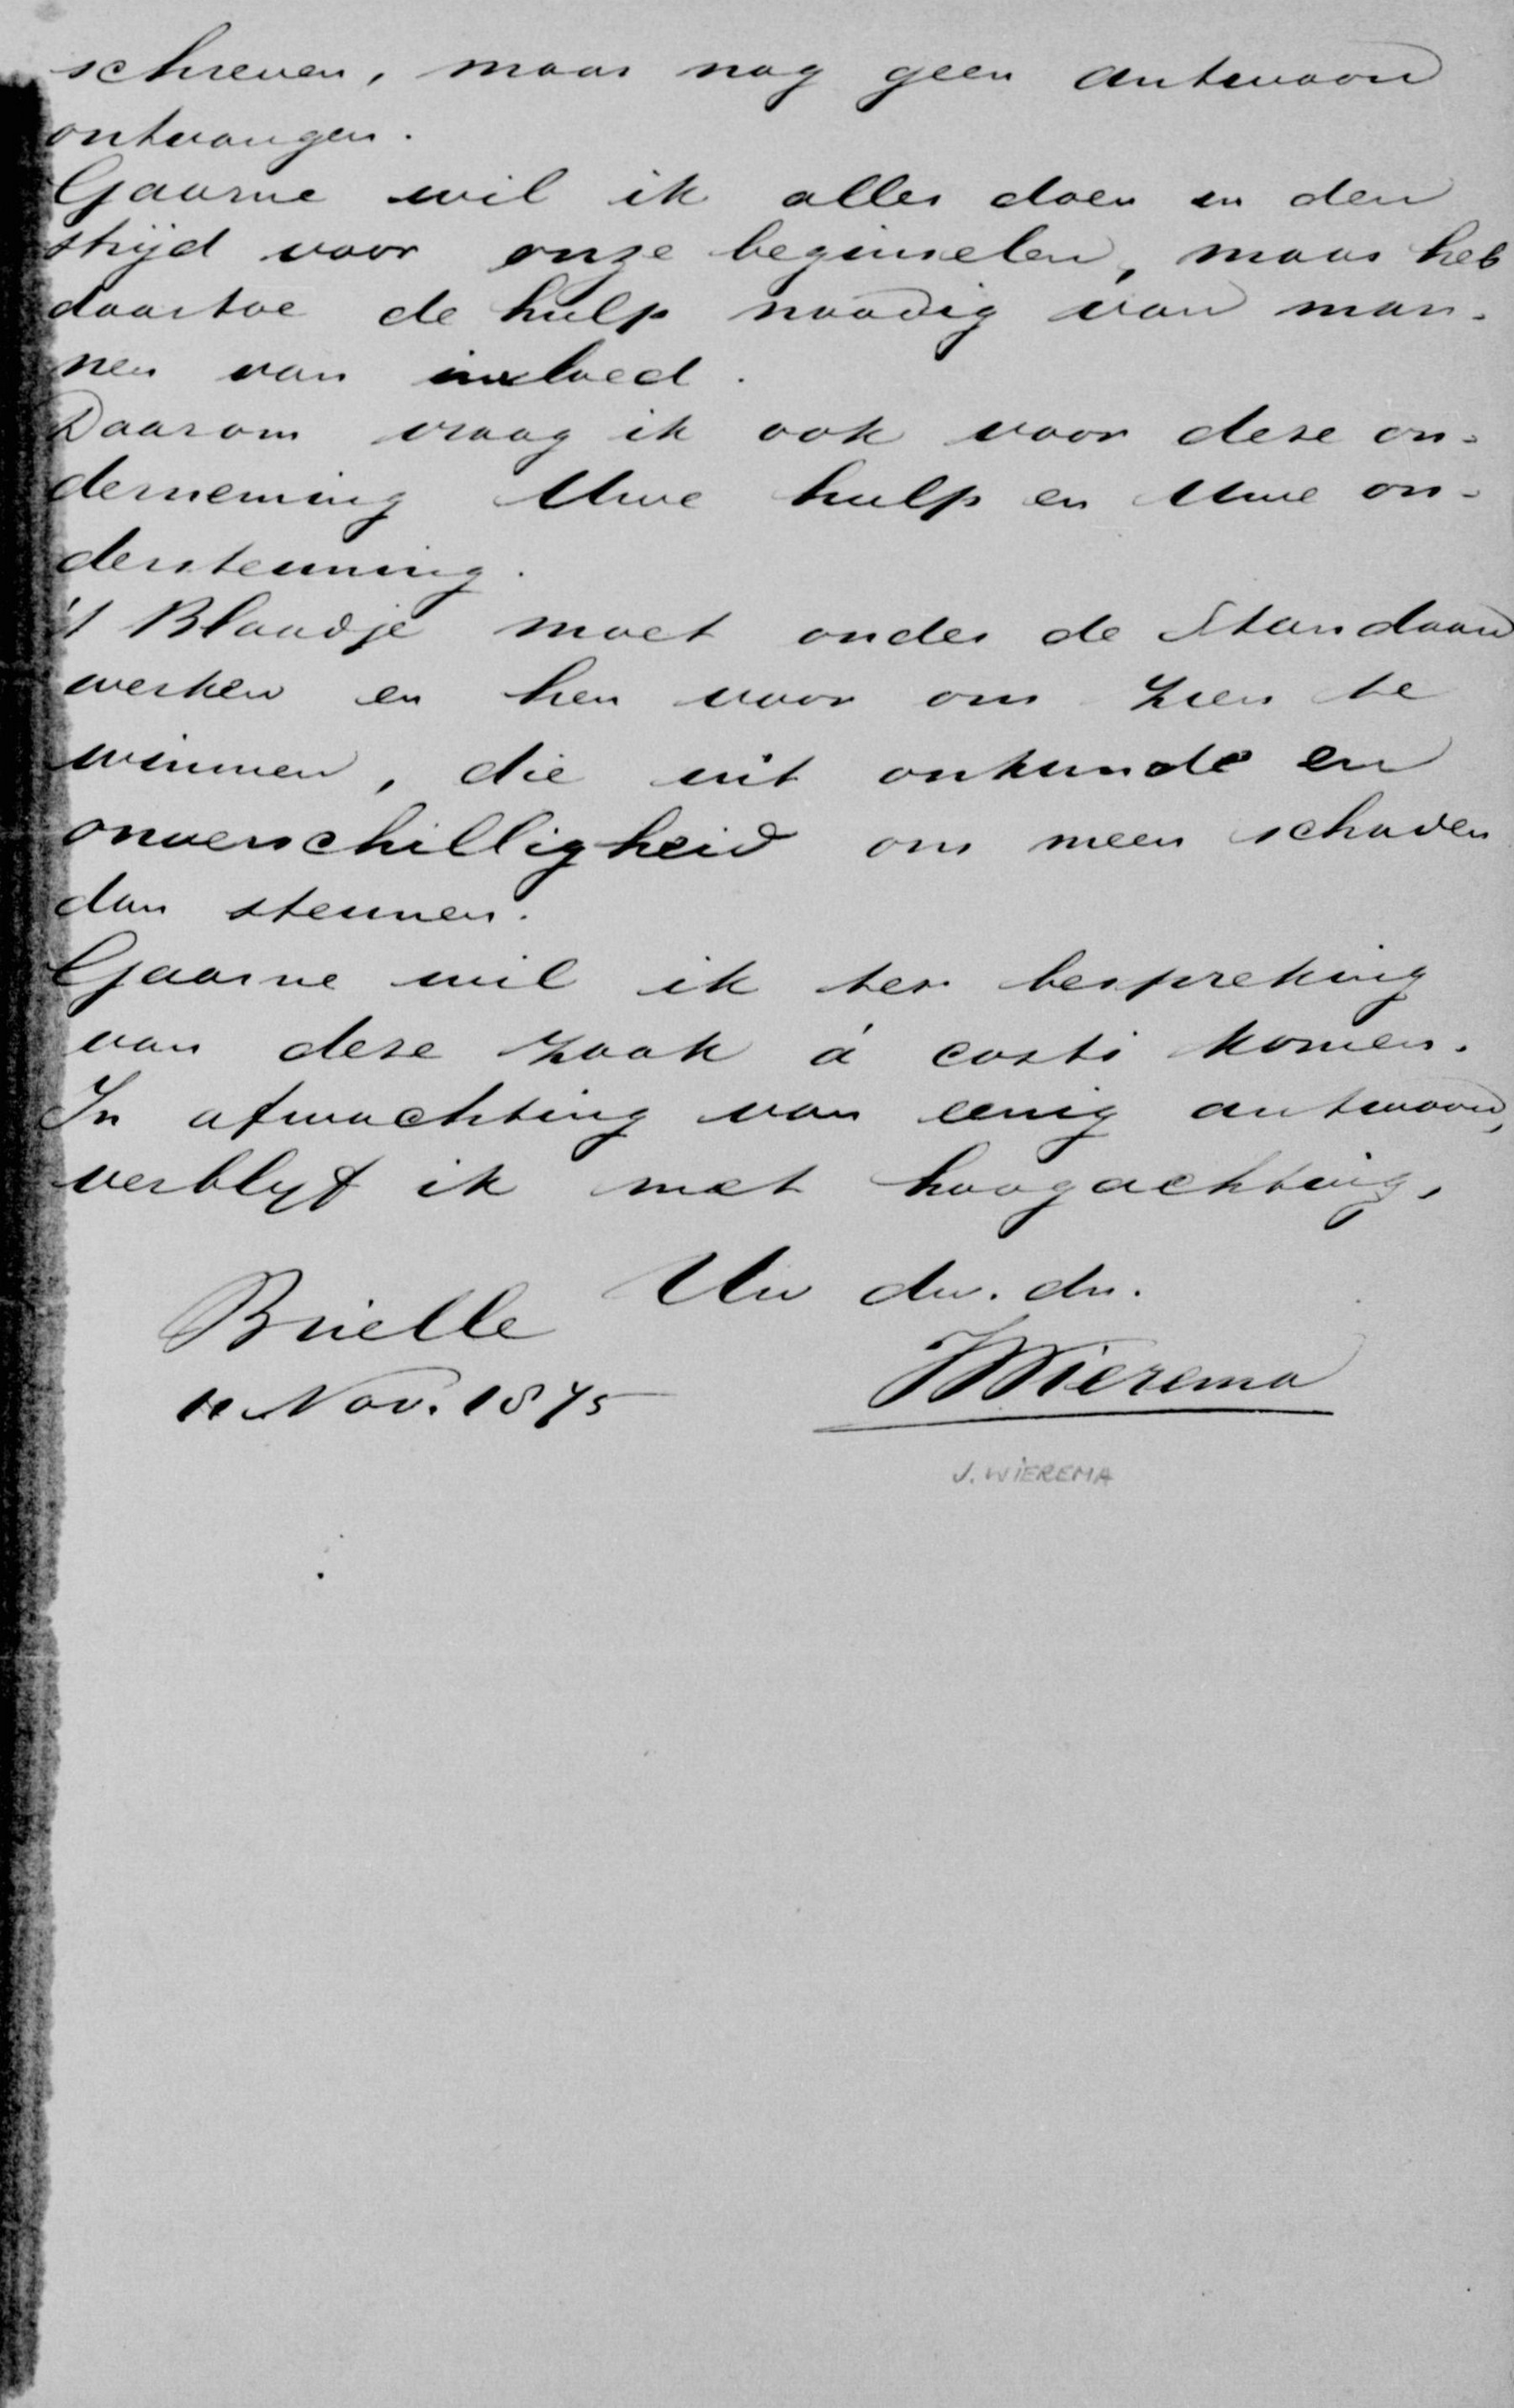 schreven, maar nog geen antwoord
ontvangen.
Gaarne wil ik alles doen in den
strijd voor onze beginselen, maar heb
daartoe de hulp noodig van man-
nen van invloed.
Daarom vraag ik ook voor deze on-
derneming Uwe hulp en Uwe on-
dersteuning.
't Blaadje moet onder de Standaard
werken en hen voor ons zien te
winnen, die uit onkunde en
onverschilligheid ons meer schaden
dan steunen.
Gaarne wil ik ter bespreking
van deze zaak á costi komen.
In afwachting van eenig antwoord,
verblyf ik met hoogachting,
Uw dw. dn.
Brielle
11 Nov. 1875
JWierema
J. WIEREMA